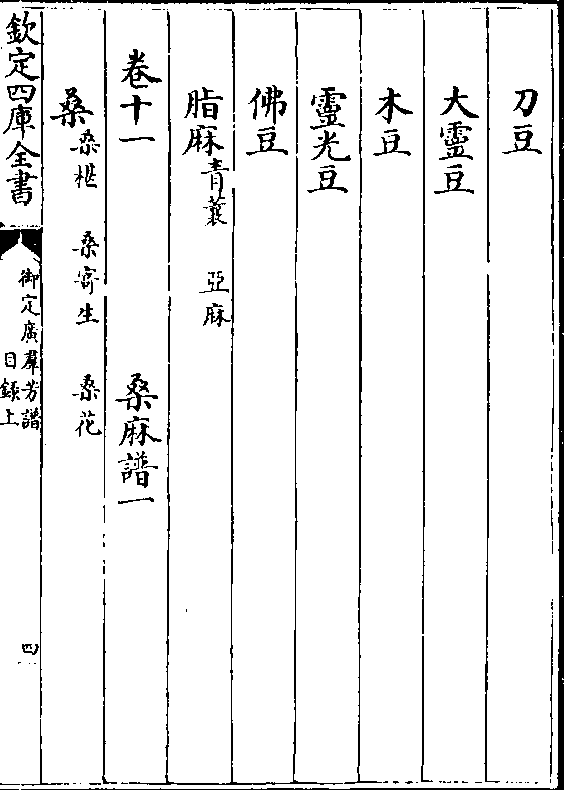 刀豆
大靈豆
木豆
靈光豆
佛豆
脂麻 青蘘 亞麻
卷十一 桑麻譜一
桑 桑椹 桑寄生 桑花
欽定四庫全書
御定廣羣芳譜
目錄上
四